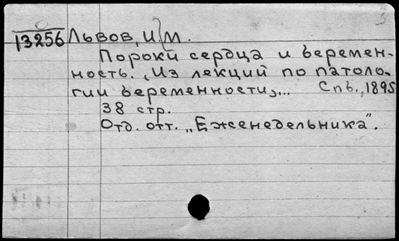 13256 Львов, И. М.
Пороки сердца и беремен-
ность. "Из лекций по патоло-
гии беременности"... Спб., 1895
38 стр.
Отд. отт. "Еженедельника".